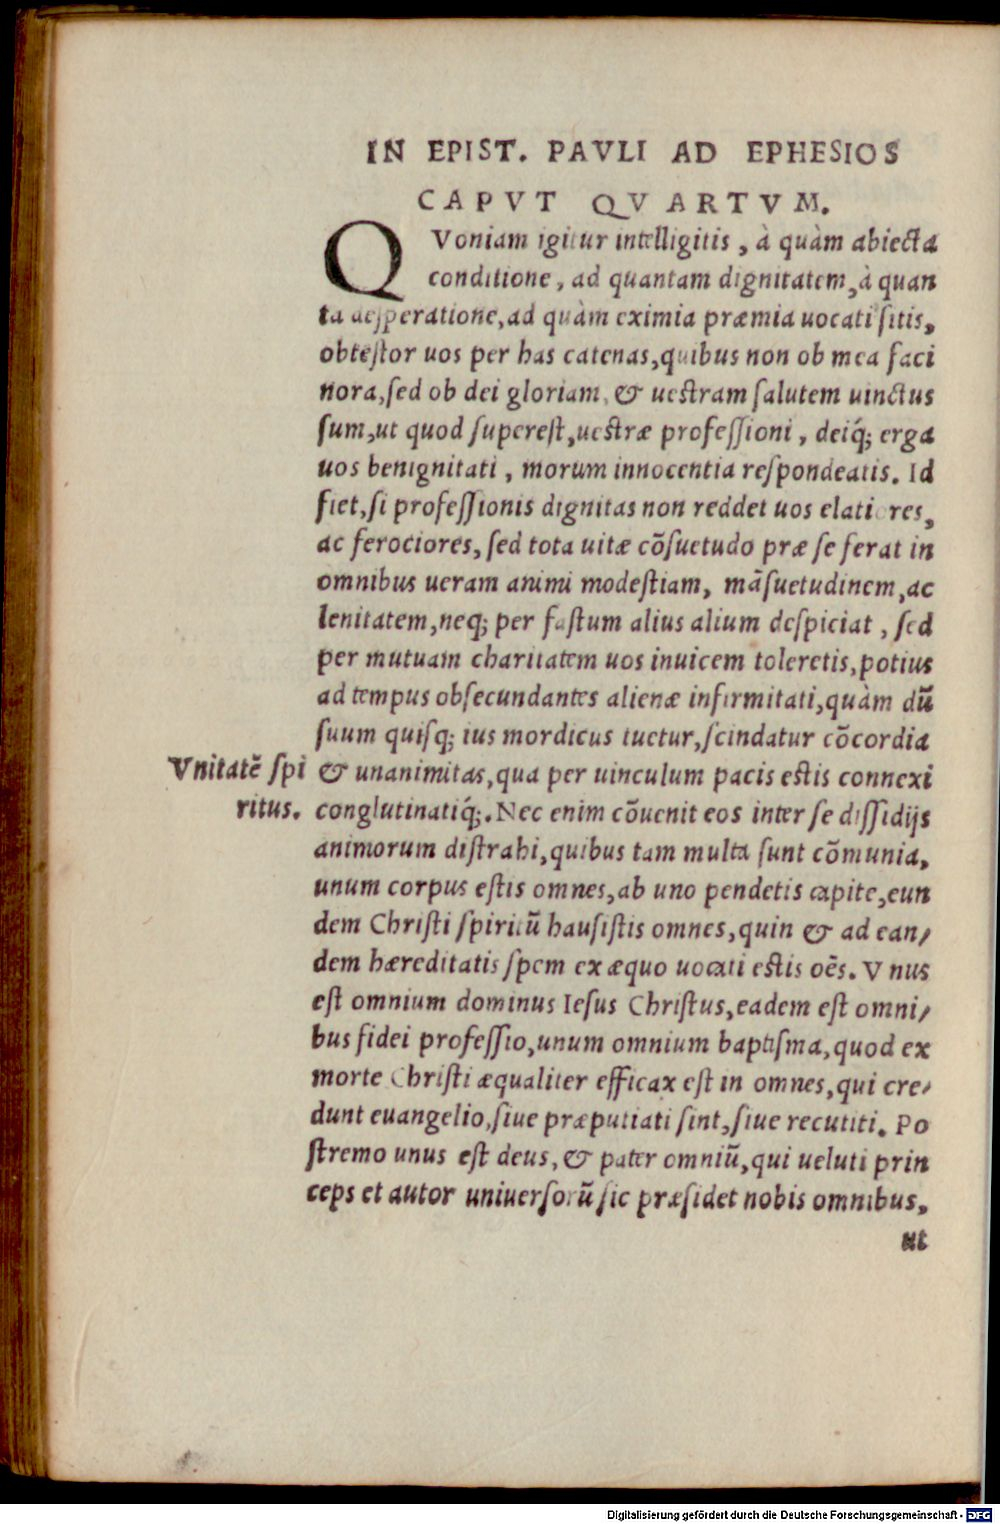 IN EPIST. PAVLI AD EPHESIOS
CAPVT QVARTVM.
QVoniam igitur intelligitis, à quàm abiecta
conditione, ad quantam dignitatem, à quan
ta desperatione, ad quàm eximia præmia uocati sitis,
obtestor uos per has catenas, quibus non ob mea faci
nora, sed ob dei gloriam, & uestram salutem uinctus
sum, ut quod superest, uestræ professioni, deiq́; erga
uos benignitati, morum innocentia respondeatis. Id
fiet, si professionis dignitas non reddet uos elatiores,
ac ferociores, sed tota uitæ cõsuetudo præ se ferat in
omnibus ueram animi modestiam, mãsuetudinem, ac
lenitatem, neq; per fastum alius alium despiciat, sed
per mutuam charitatem uos inuicem toleretis, potius
ad tempus obsecundantes alienæ infirmitati, quàm dũ
suum quisq; ius mordicus tuetur, scindatur cõcordia
Vnitatẽ spi
ritus.
& unanimitas, qua per uinculum pacis estis connexi
conglutinatiq́;. Nec enim cõuenit eos inter se dissidijs
animorum distrahi, quibus tam multa sunt cõmunia,
unum corpus estis omnes, ab uno pendetis capite, eun
dem Christi spiritũ hausistis omnes, quin & ad ean/
dem hæreditatis spem ex æquo uocati estis oẽs. Vnus
est omnium dominus Iesus Christus, eadem est omni/
bus fidei professio, unum omnium baptisma, quod ex
morte Christi æqualiter efficax est in omnes, qui cre/
dunt euangelio, siue præputiati sint, siue recutiti. Po
stremo unus est deus, & pater omniũ, qui ueluti prin
ceps et autor uniuersorũ sic præsidet nobis omnibus,
ut
Digitalisierung gefördert durch die Deutsche Forschungsgemeinschaft - DFG